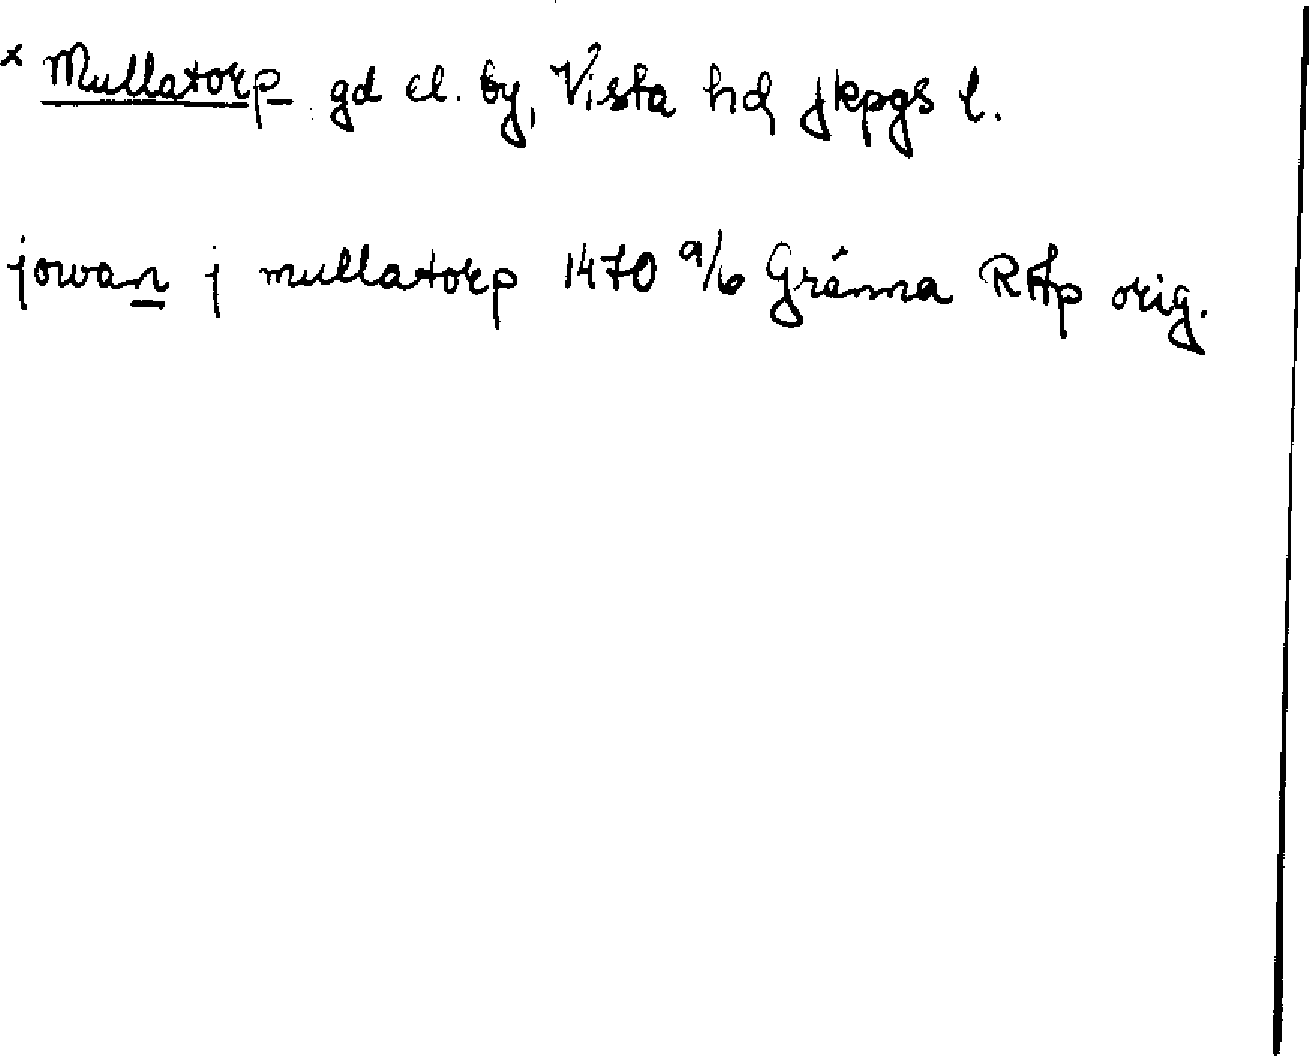 x Mullatorp gd el. by, Vista hd Jkpgs l.
jowan j mullatorp 1470 9/6 Gränna RAp orig.